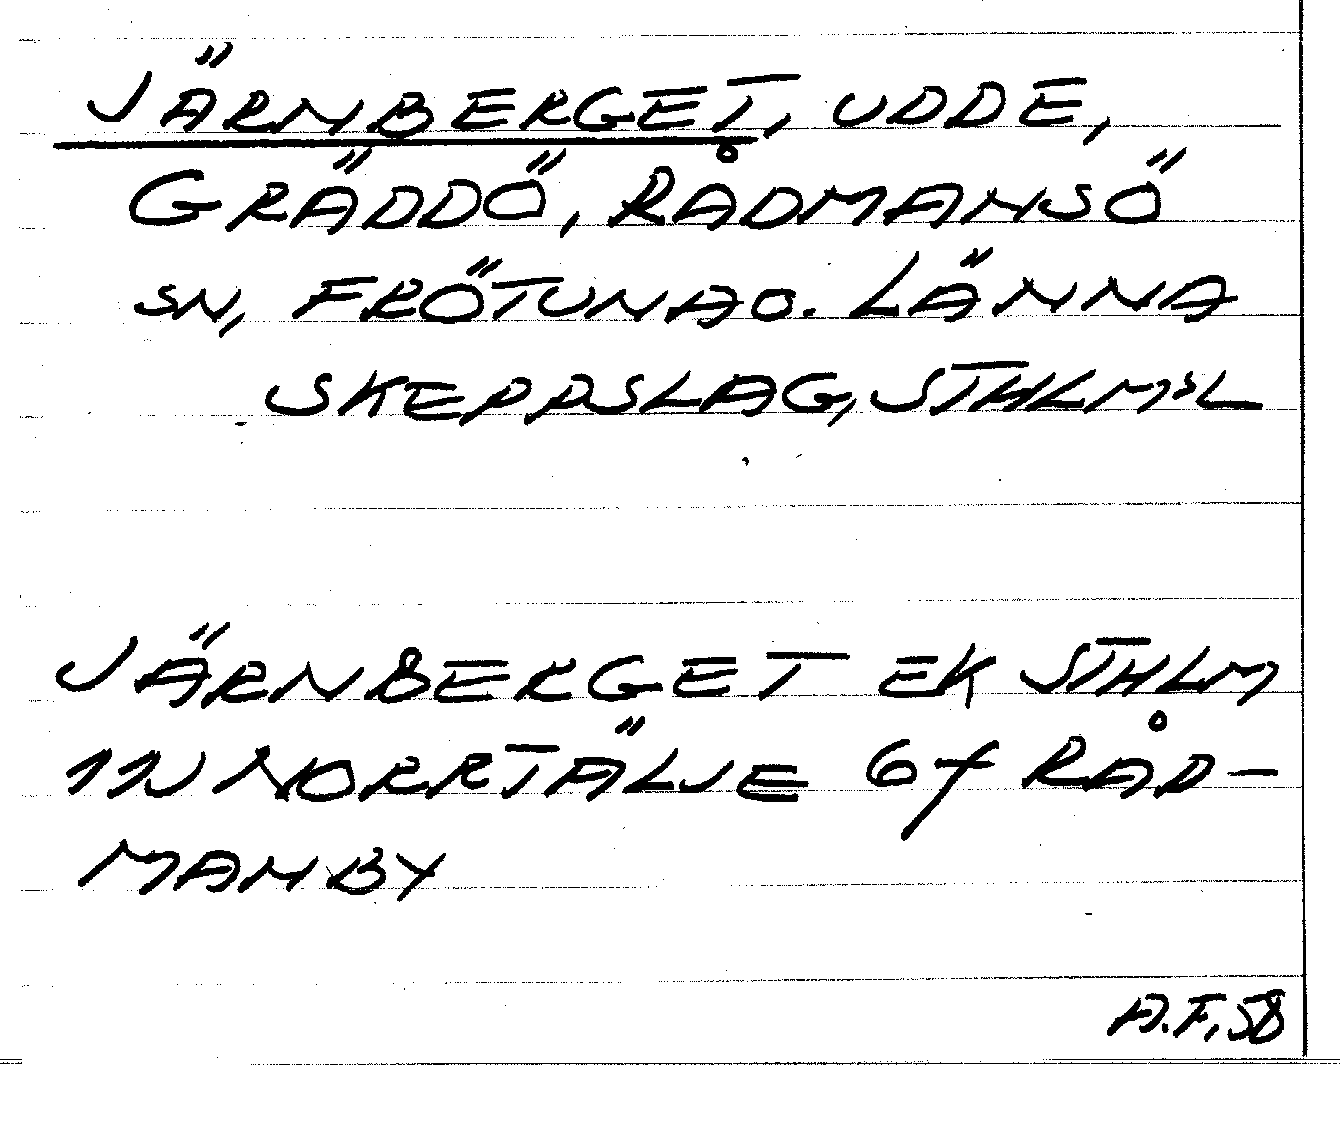 JÄRNBERGET, UDDE,
GRÄDDÖ, RÅDMANSÖ
SN, FRÖTUNA O. LÄNNA
SKEPPSLAG, STHLMS L
JÄRNBERGET EK STHLM
11N NORRTÄLJE 6f RÅD-
MANBY
A.F. 58